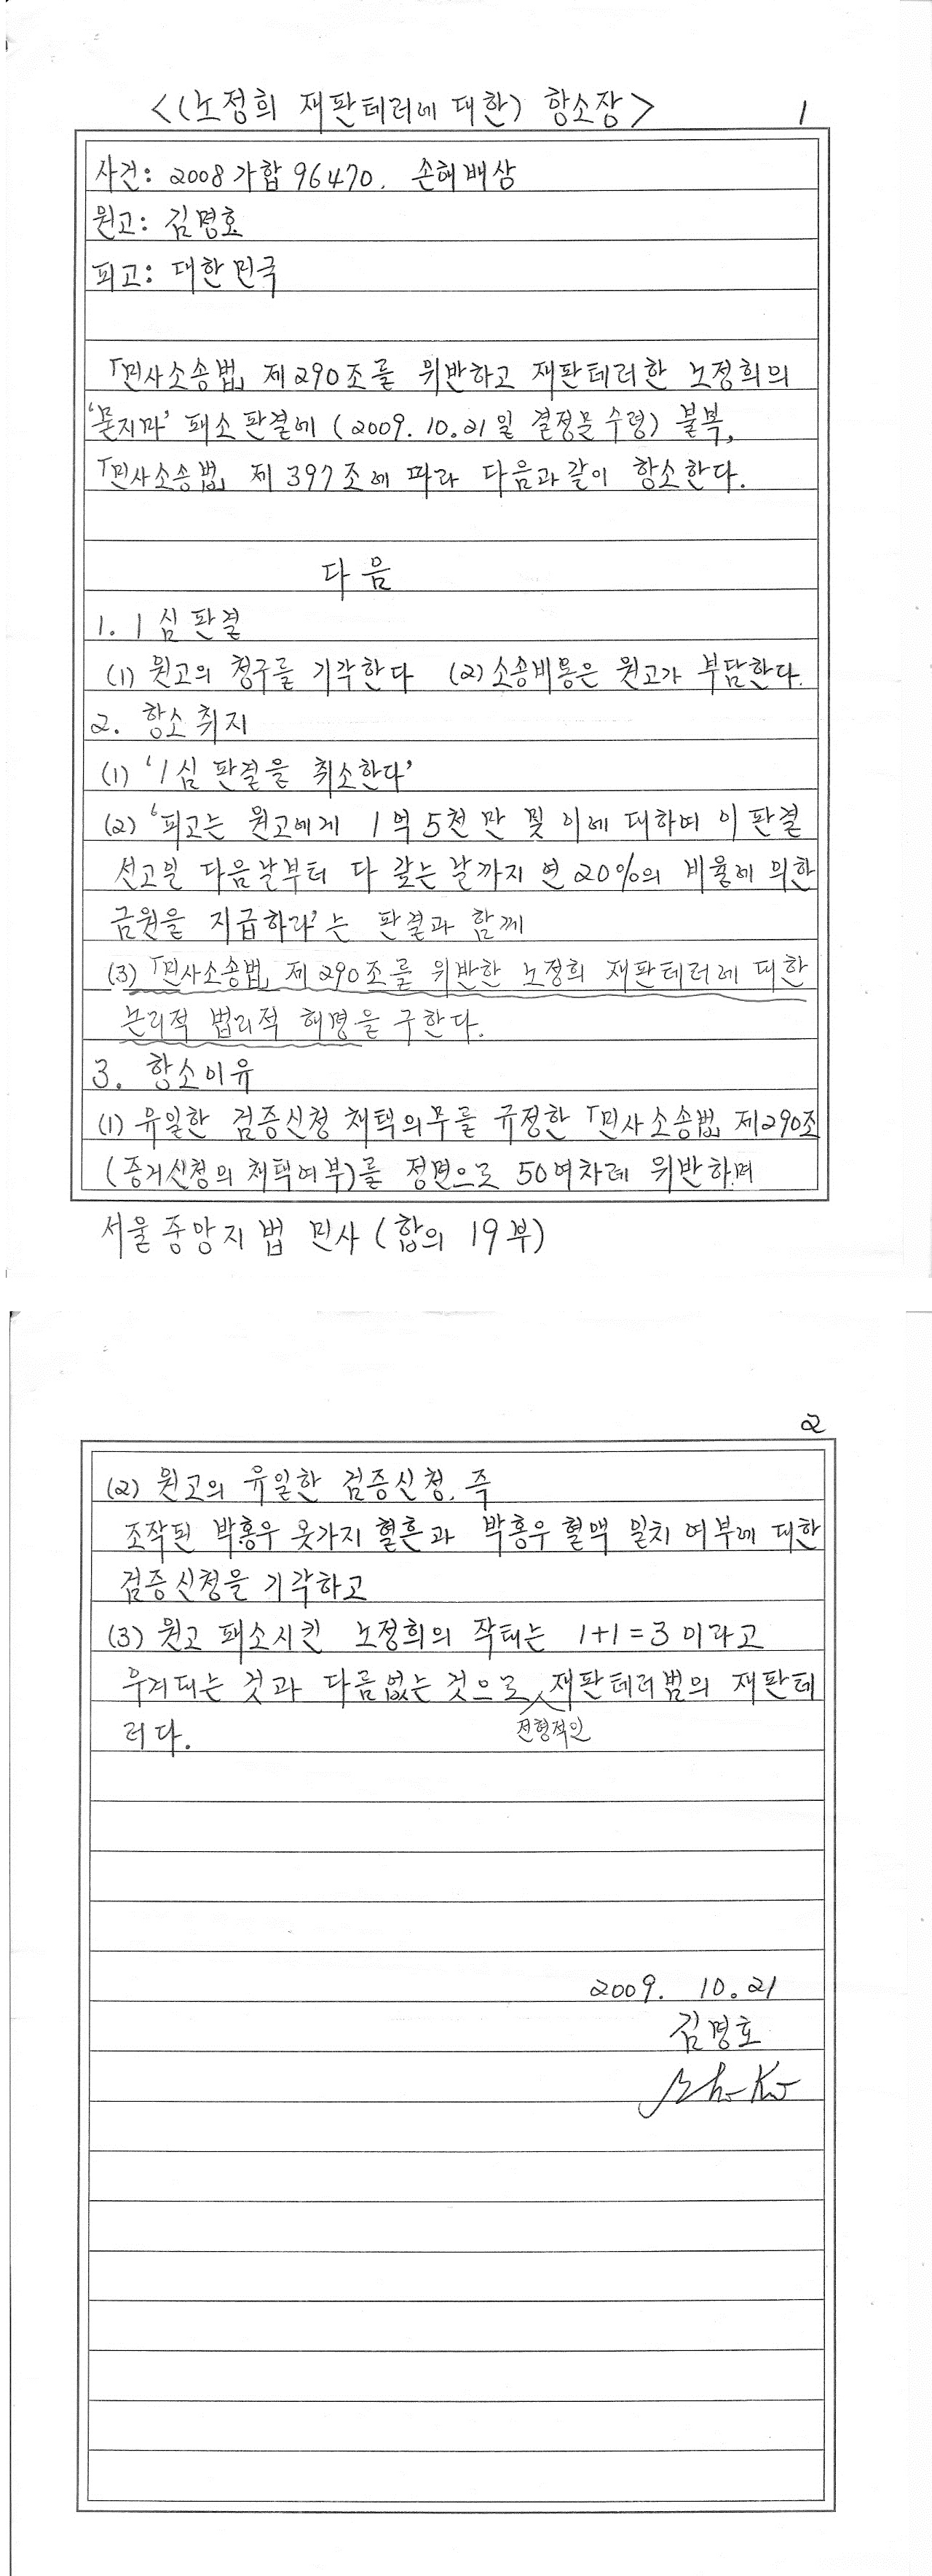 <(노정희 재판테러에 대한) 항소장>
1
사건: 2008가합 96470. 손해배상
원고: 김명호
피고: 대한민국
「민사소송법」 제290조를 위반하고 재판테러한 노정희의
'묻지마' 패소판결에 (2009.10.21일 결정문 수령) 불복,
「민사소송법」 제397조에 따라 다음과 같이 항소한다.
다음
1. 1심 판결
(1) 원고의 청구를 기각한다 (2) 소송비용은 원고가 부담한다.
2. 항소취지
(1) '1심 판결을 취소한다'
(2) '피고는 원고에게 1억 5천만 및 이에 대하여 이 판결
선고일 다음날부터 다 갚는 날까지 연 20%의 비율에 의한
금원을 지급하라'는 판결과 함께
(3) 「민사소송법」 제290조를 위반한 노정희 재판테러에 대한
논리적 법리적 해명을 구한다.
3. 항소이유
(1) 유일한 검증신청 채택의무를 규정한 「민사소송법」 제290조
(증거신청의 채택여부)를 정면으로 50여차례 위반하며
서울중앙지법 민사 (합의 19부)
2
(2) 원고의 유일한 검증신청, 즉
조작된 박홍우 옷가지 혈흔과 박홍우 혈액 일치 여부에 대한
검증신청을 기각하고
(3) 원고 패소시킨 노정희의 작태는 1+1=3 이라고
우겨대는 것과 다름없는 것으로, 재판테러범의 재판테
전형적인
러다.
2009. 10. 21
김명호